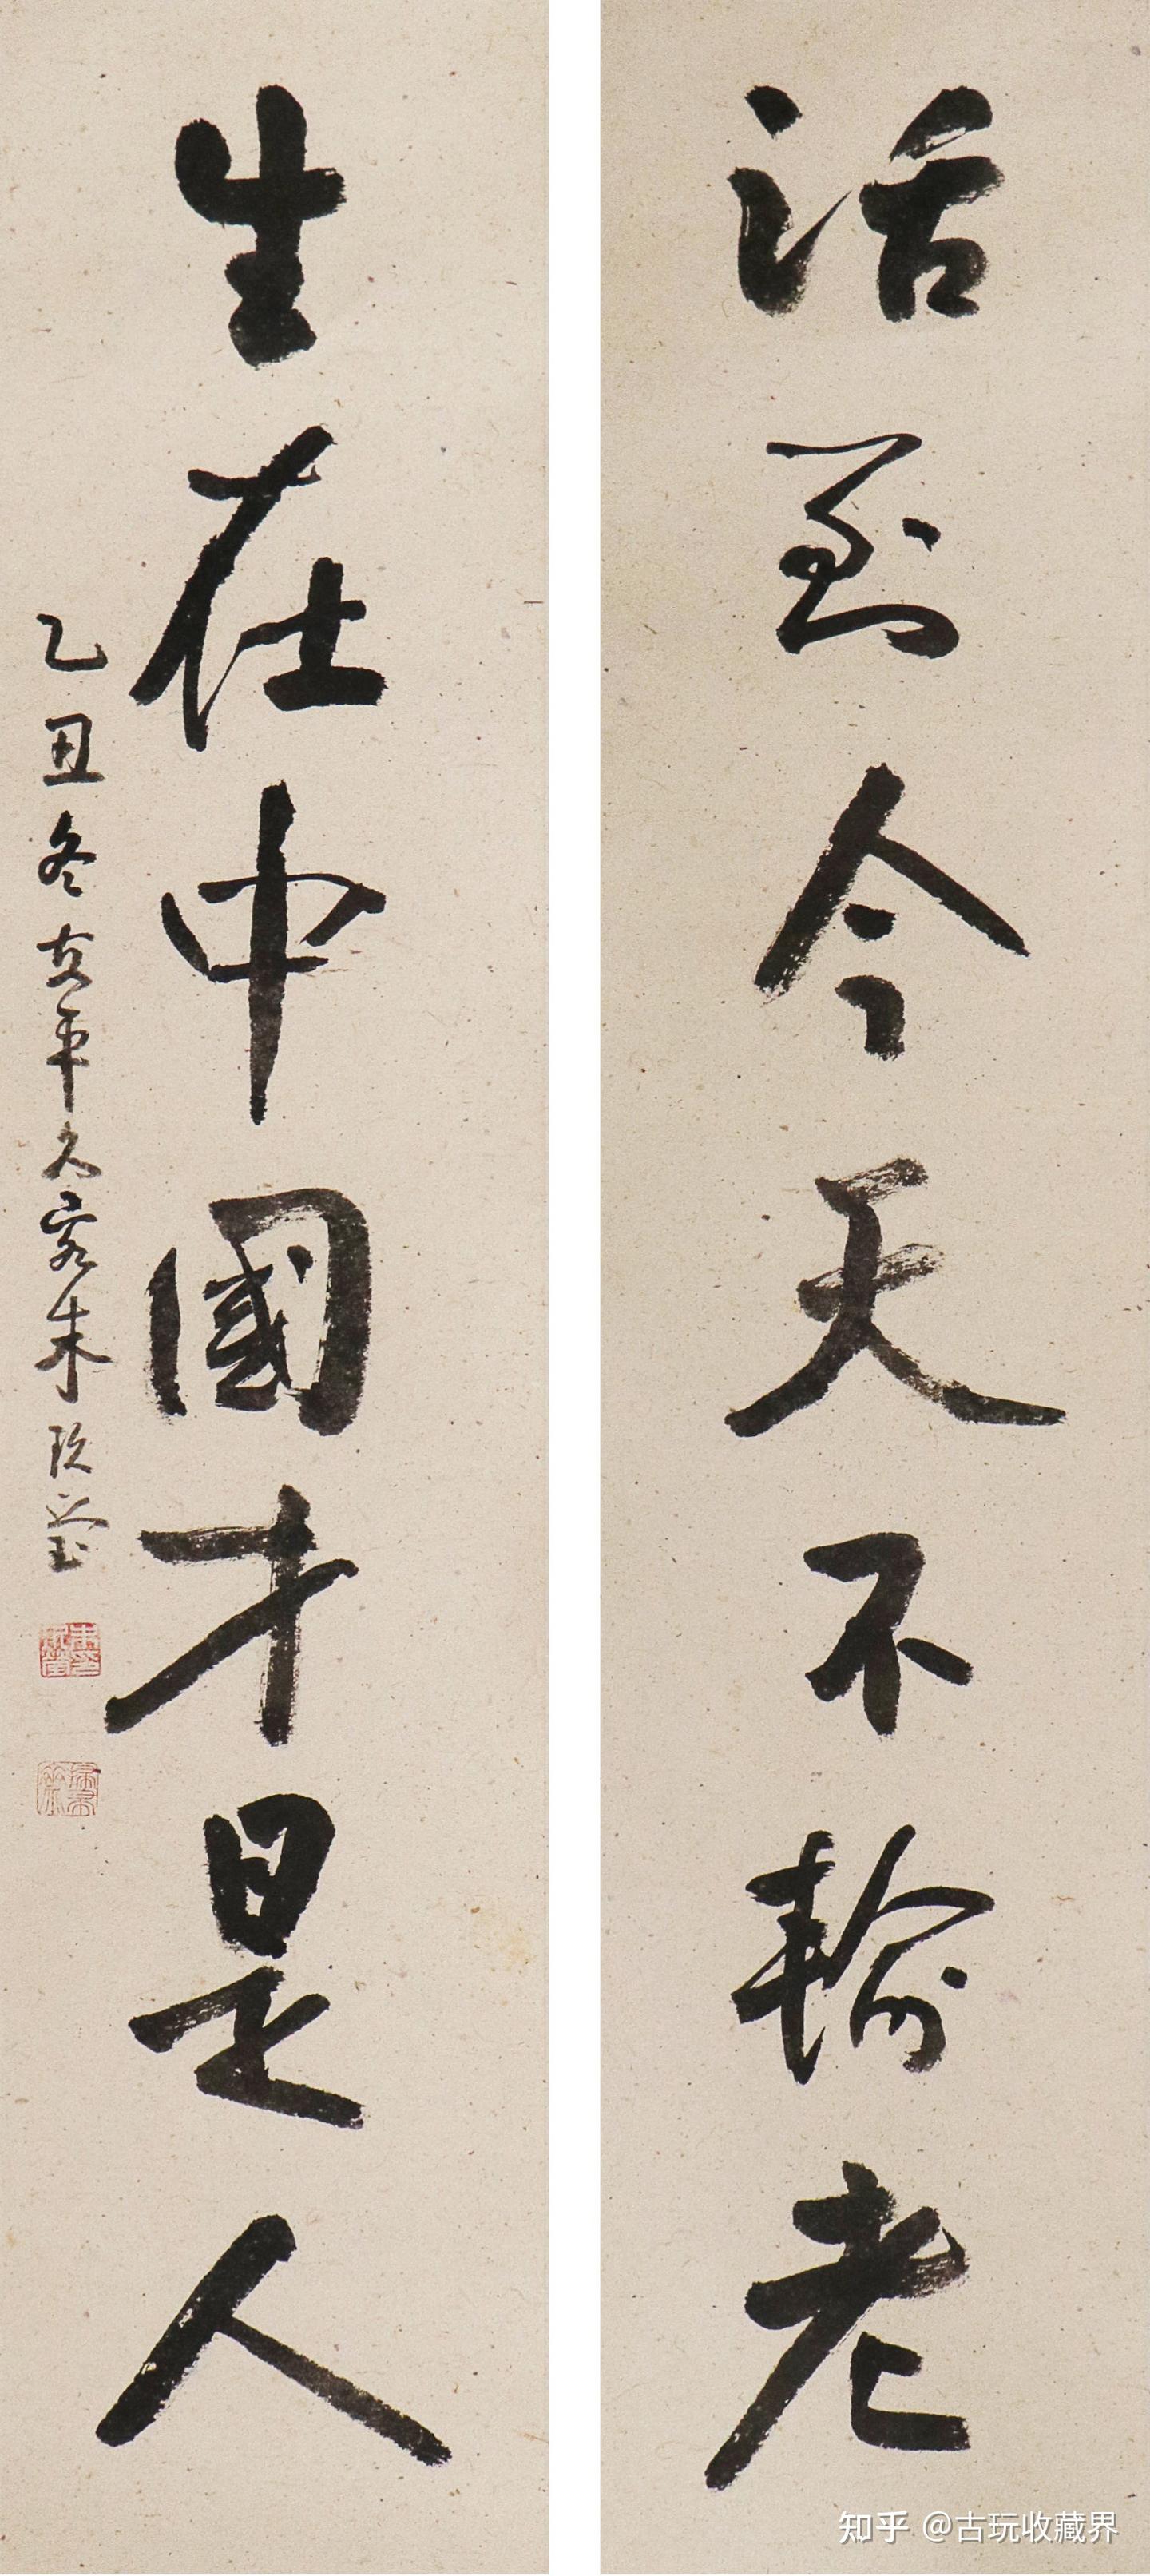 活到今天不輸老
生在中國才是人
乙丑冬 安平久客朱玖瑩
知乎 @古玩收藏界